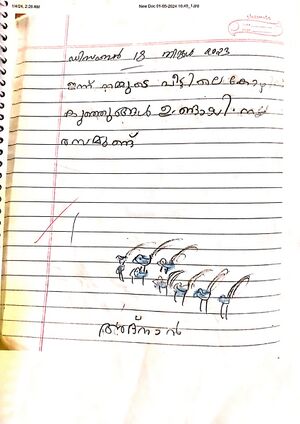 1/4/24, 2:26 AM New Doc 01-05-2024 10.45_1.jpg
ഡിസംബർ 18 തിങ്കൾ 2023
ഇന്ന് നമ്മുടെ വീട്ടിലെ കോഴി
കുഞ്ഞുങ്ങൾ ഉണ്ടായി. നല്ല
രസമുണ്ട്
അദ്നാൻ